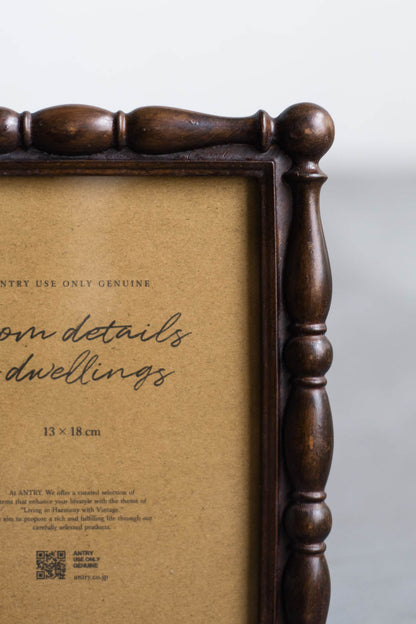 NTRY USE ONLY GENUINE
om details
dwellings
13 × 18 cm
At ANTRY. We offer a curated selection of
items that enhance your lifestyle with the theme of
"Living in Harmony with Vintage."
aim to propose a rich and fulfilling life through our
carefully selected products.
ANTRY
USE ONLY
GENUINE
antry.co.jp